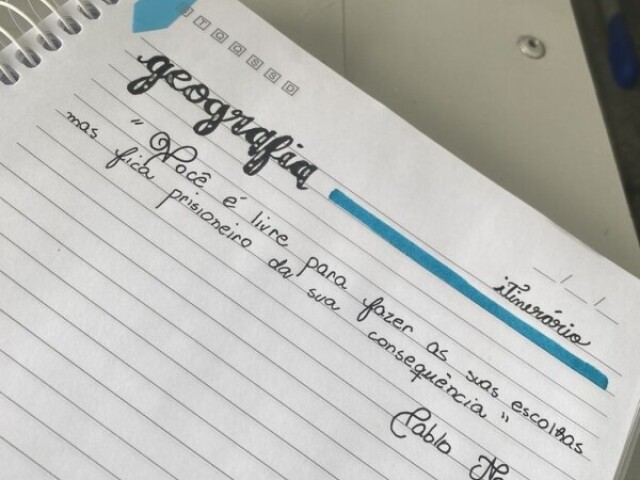 S T Q Q S S D
geografia
itinerário
"Você é livre para fazer as suas escolhas
mas fica prisioneiro da sua consequência"
Pablo